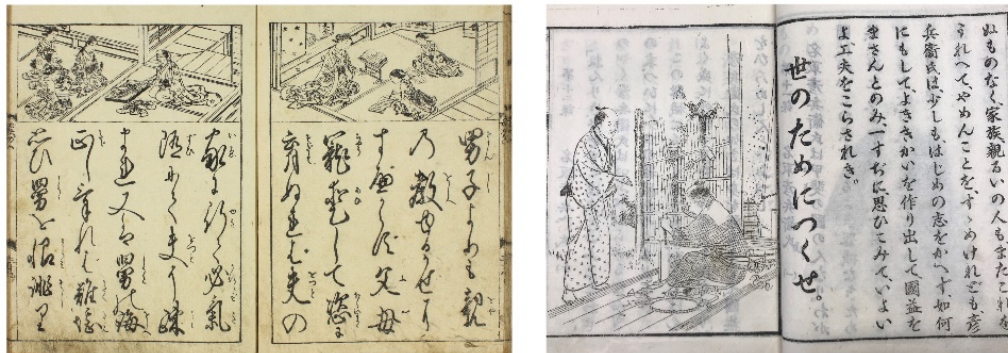 男子よりも親
の教ゆるがせに
すべからず父母
寵愛して恣に
育ぬれば夫の
家に行て必気
随にて夫に疎
まれ又は舅の誨
正ければ難堪
思ひ舅を恨誹り
ぬものなく家族親るいの人もまた
うれへて、やめんことを、すゝめけれども、彦
兵衞氏は、少しもはじめの志をかへず如何
にもして、よききかいを作り出して國益を
生さんとのみ、一すぢに思ひこみて、いよい
よ工夫をこらされき。
世のためにつくせ。